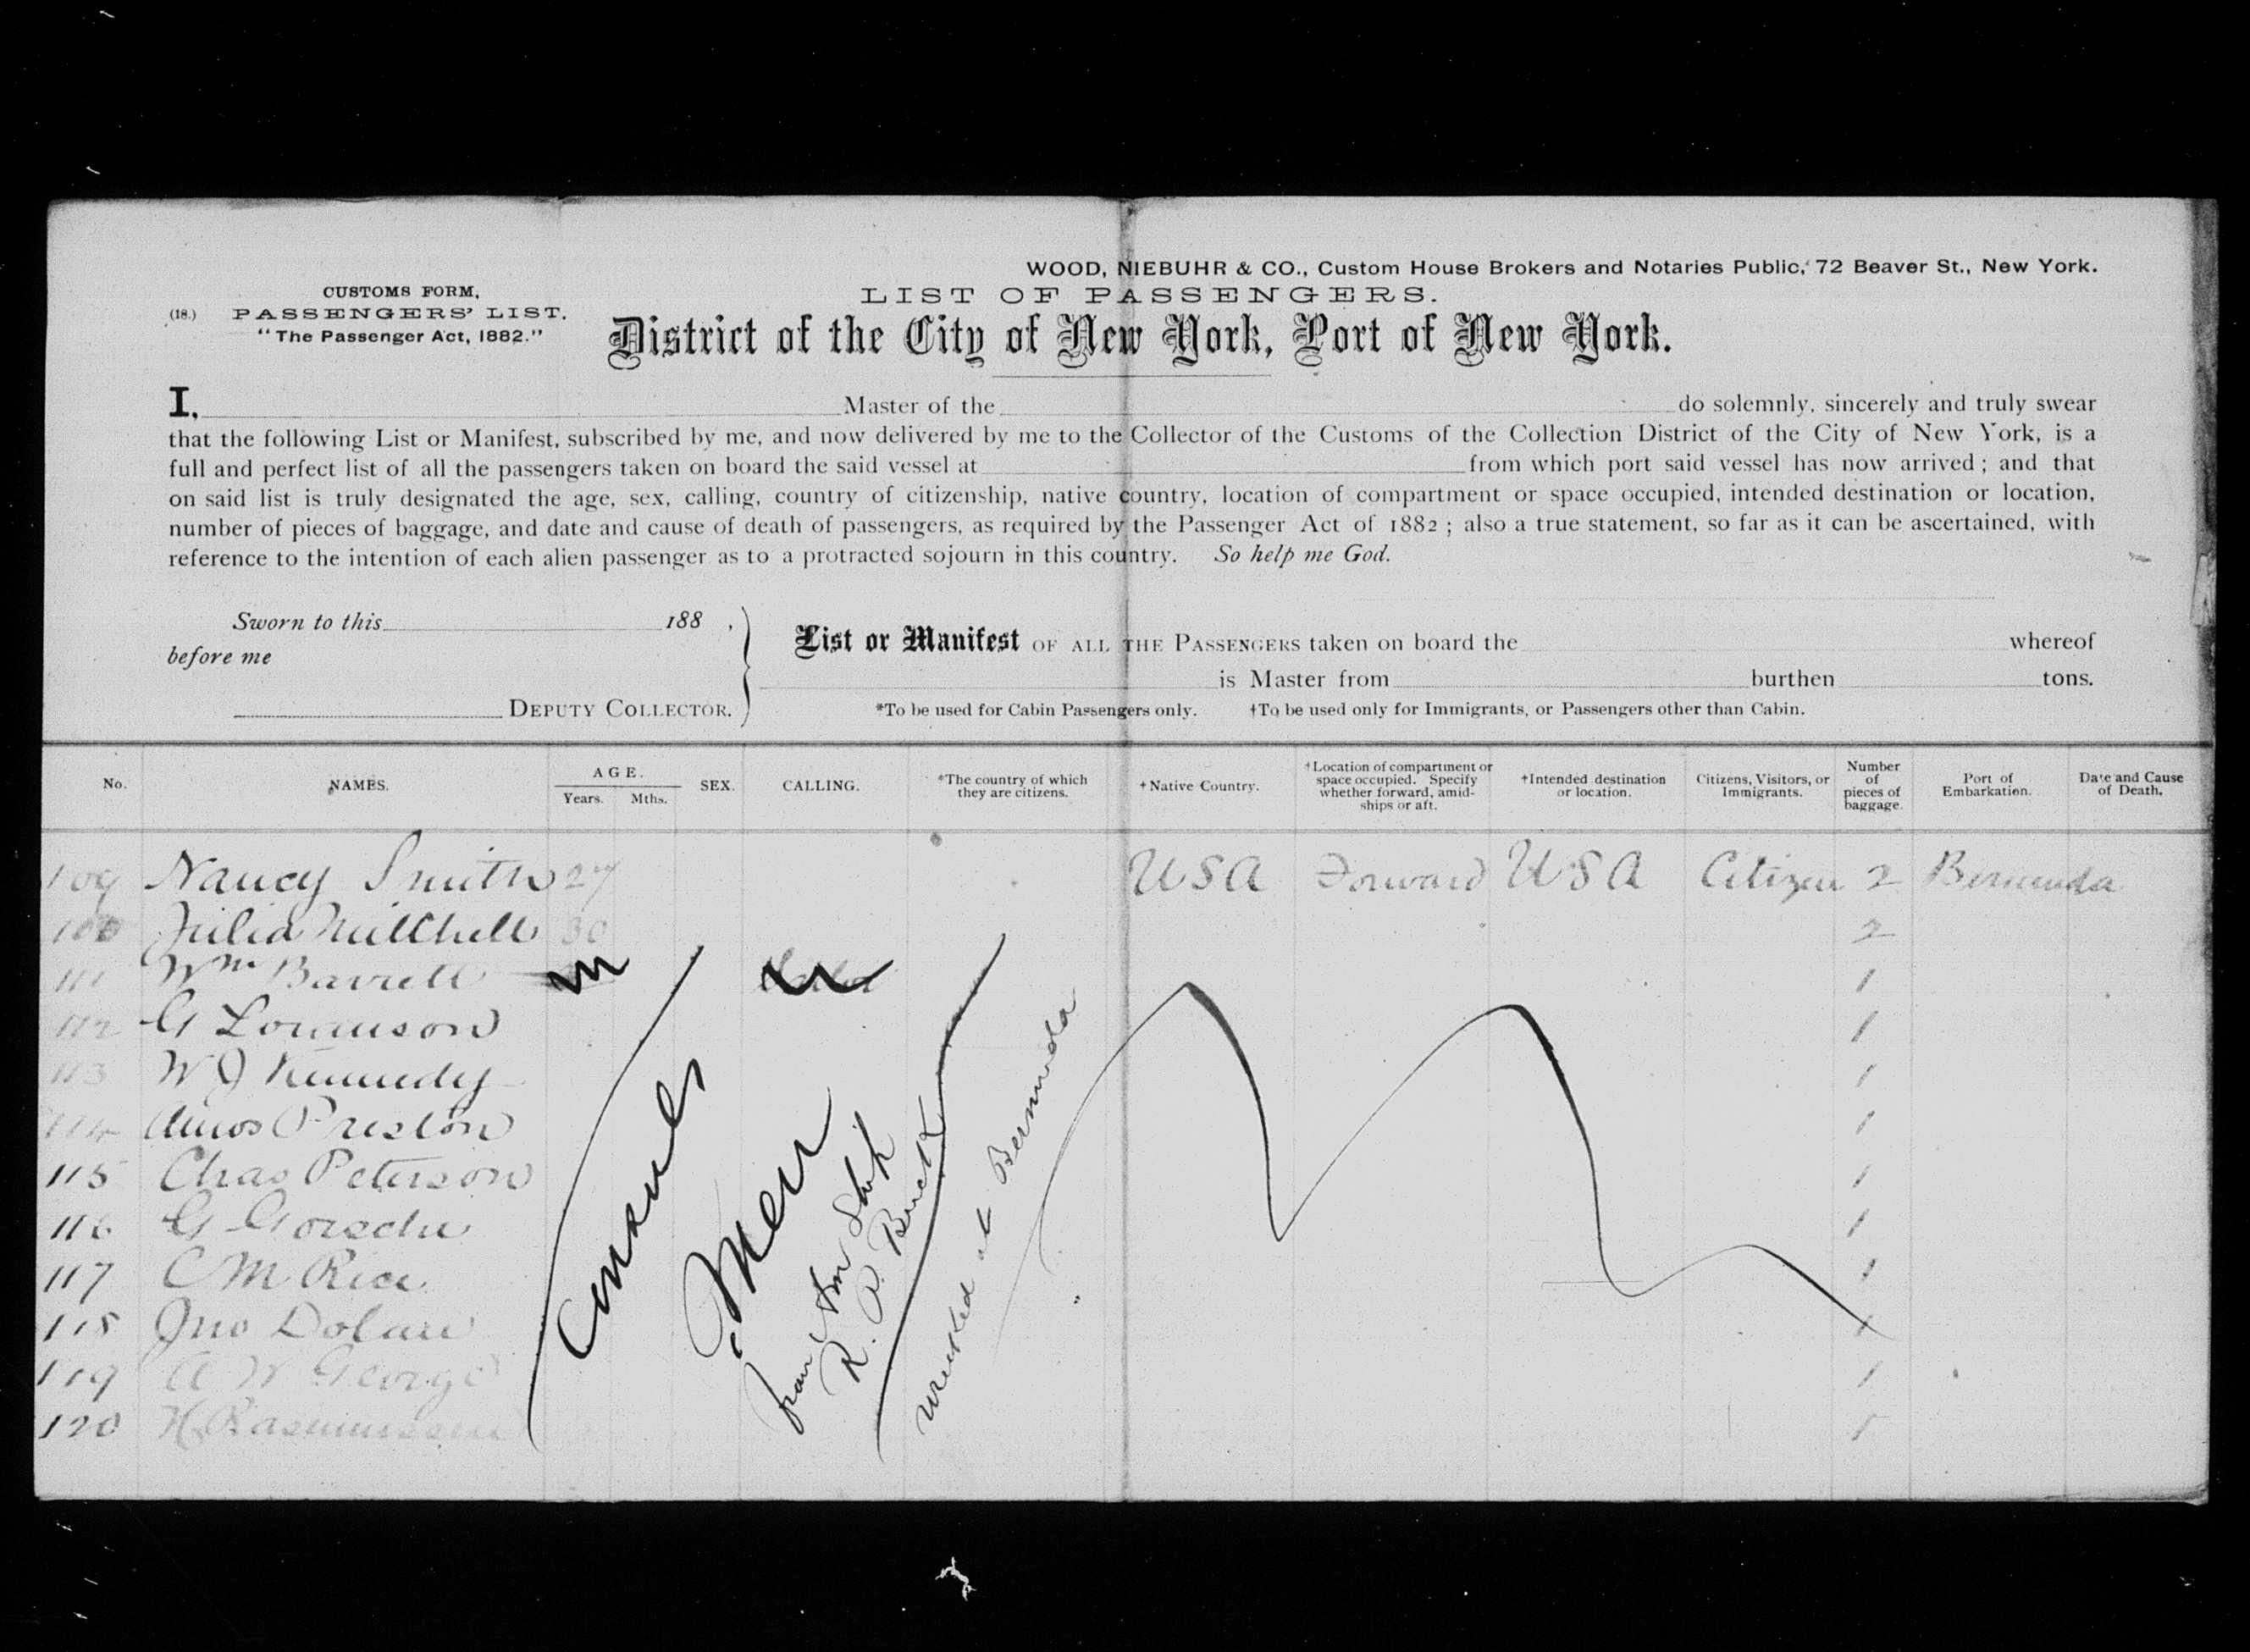 WOOD, NIEBUHR & CO., Custom House Brokers and Notaries Public, 72 Beaver St., New York.
CUSTOMS FORM,
(18.) PASSENGERS' LIST.
"The Passenger Act, 1882."
LIST OF PASSENGERS.
District of the City of New York, Port of New York.
I, Master of the do solemnly, sincerely and truly swear
that the following List or Manifest, subscribed by me, and now delivered by me to the Collector of the Customs of the Collection District of the City of New York, is a
full and perfect list of all the passengers taken on board the said vessel at from which port said vessel has now arrived; and that
on said list is truly designated the age, sex, calling, country of citizenship, native country, location of compartment or space occupied, intended destination or location,
number of pieces of baggage, and date and cause of death of passengers, as required by the Passenger Act of 1882; also a true statement, so far as it can be ascertained, with
reference to the intention of each alien passenger as to a protracted sojourn in this country. So help me God.
Sworn to this 188 ,
before me
DEPUTY COLLECTOR.
List or Manifest OF ALL THE PASSENGERS taken on board the whereof
is Master from burthen tons.
*To be used for Cabin Passengers only. †To be used only for Immigrants, or Passengers other than Cabin.
No. NAMES. AGE. Years. Mths. SEX. CALLING. *The country of which they are citizens. †Native Country. †Location of compartment or space occupied. Specify whether forward, amidships or aft. †Intended destination or location. Citizens, Visitors, or Immigrants. Number of pieces of baggage. Port of Embarkation. Date and Cause of Death.
109 Nancy Smith 27 USA Forward USA Citizen 2 Bermuda
Julia Mitchell 30 2
111 Wm Barrett 1
112 G 1
113 W J Kennedy 1
114 Amos Preston 1
115 Chas Peterson 1
116 G 1
117 C M Rice 1
118 Jno Dolan 1
119 A W George 1
120 H Rasmussen 1
Men
from Am Ship
R. P. Buck
wrecked at Bermuda